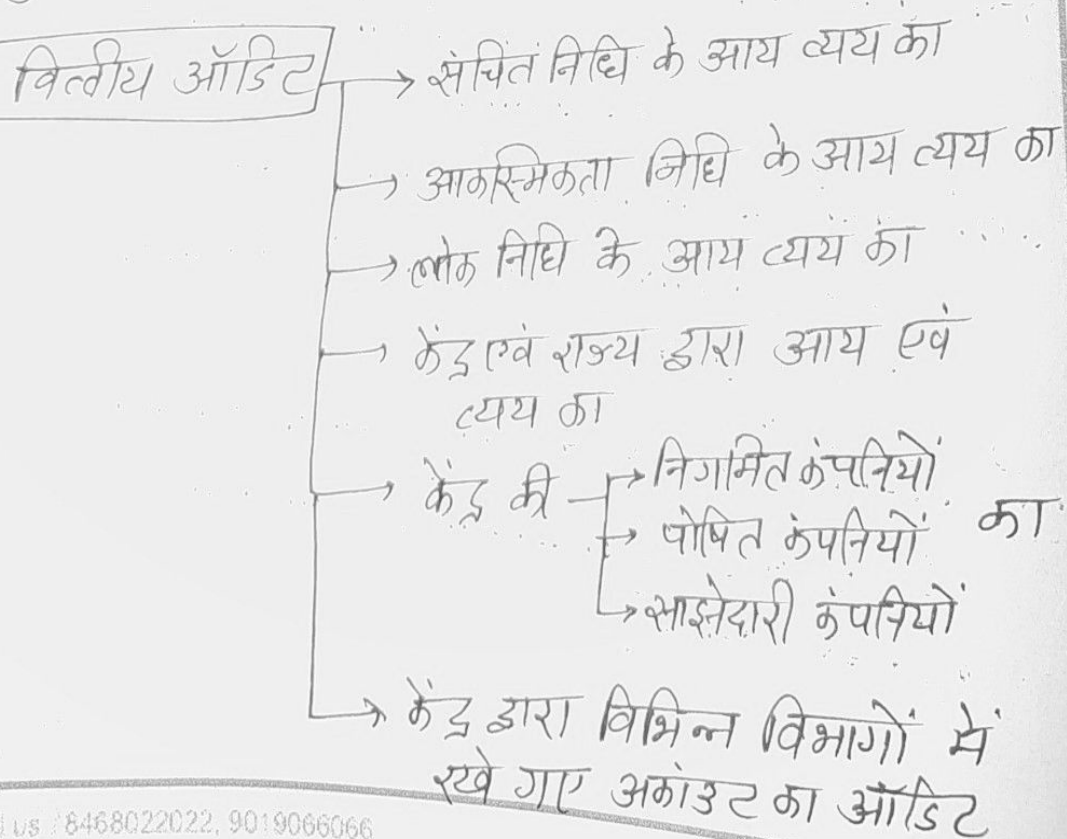 वित्तीय ऑडिट
→ संचित निधि के आय व्यय का
→ आकस्मिकता निधि के आय व्यय का
→ लोक निधि के आय व्यय का
→ केंद्र एवं राज्य द्वारा आय एवं
व्यय का
→ केंद्र की → निगमित कंपनियों
→ पोषित कंपनियों का
→ साझेदारी कंपनियों
→ केंद्र द्वारा विभिन्न विभागों में
रखे गए अकांउट का ऑडिट
us 8468022022, 9019066066